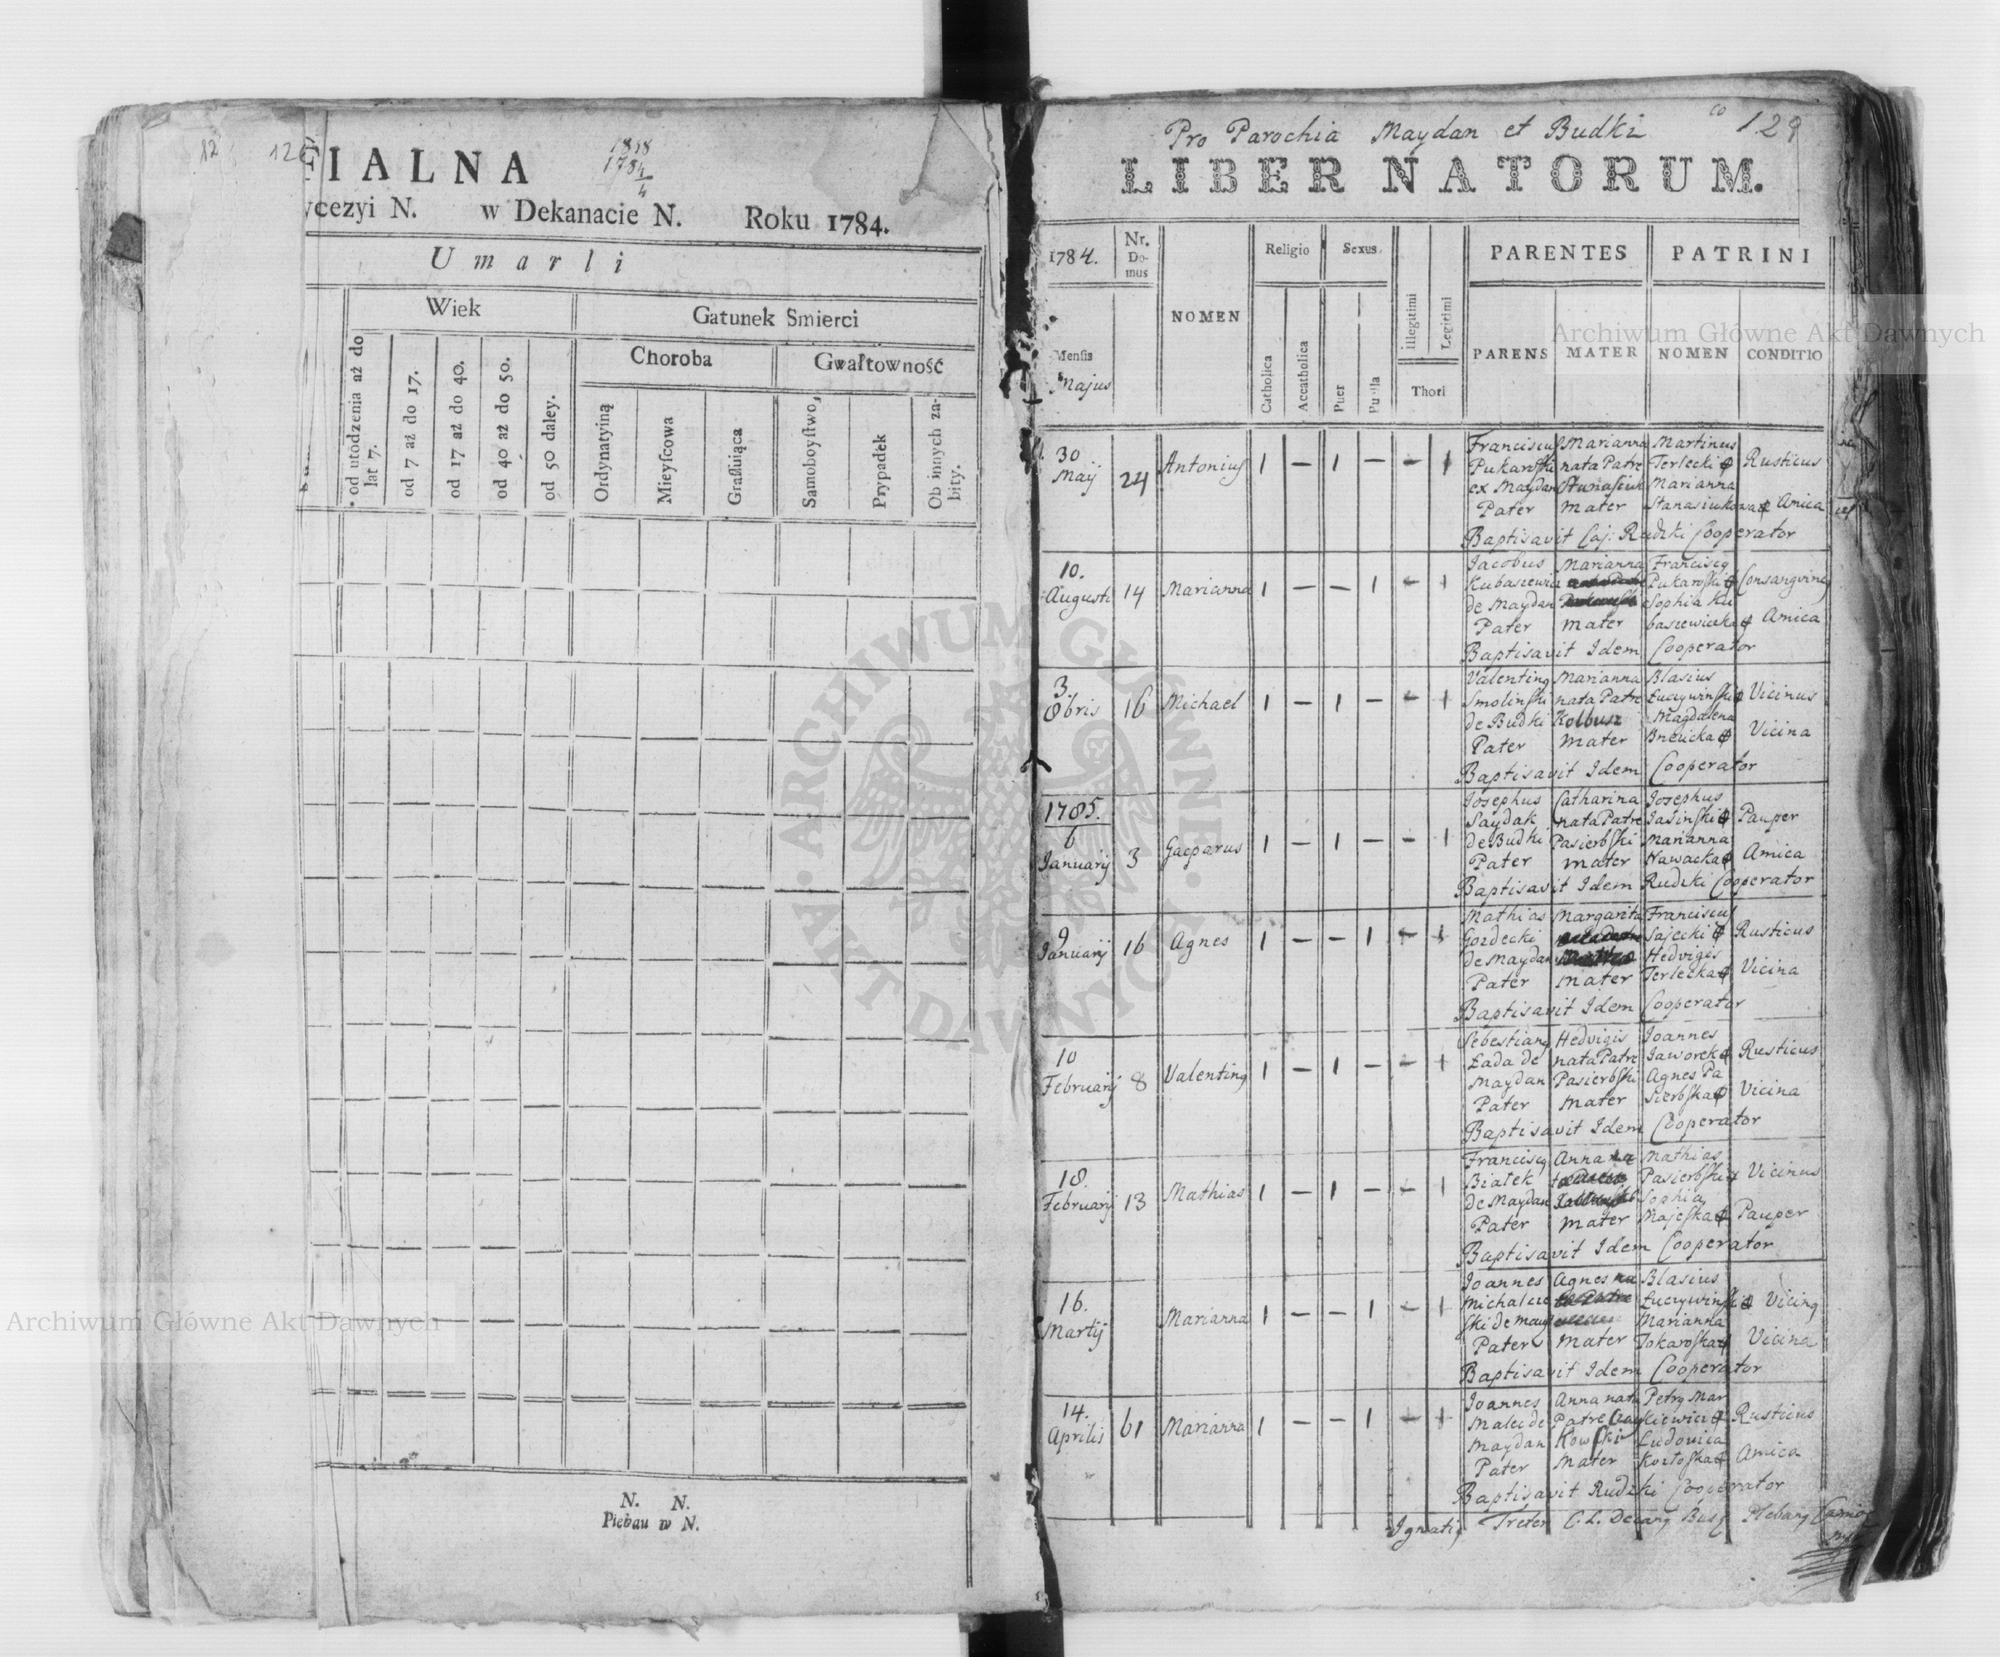 FIALNA
1784
ycezyi N. w Dekanacie N. Roku 1784.
Umarli
Wiek
Gatunek Smierci
Choroba
Gwałtowność
od utódzenia aż do lat 7.
od 7 aż do 17.
od 17 aż do 40.
od 40 aż do 50.
od 50 daley.
Ordynatyiną
Mieyscowa
Grassuiąca
Samoboystwo,
Przypadek
Ob innych zabity.
N. N.
Pleban w N.
Pro Parochia Maydan et Budki
129
LIBER NATORUM.
1784.
Nr. Domus
NOMEN
Religio
Sexus
PARENTES
PATRINI
Mensis
Majus
Catholica
Accatholica
Puer
Puella
Illegitimi
Legitimi
Thori
PARENS
MATER
NOMEN
CONDITIO
Franciscus Marianna Martinus
30 Pukarski nata Patre Terlecki Rusticus
Maij 24 Antonius 1 — 1 — — 1 ex Maydan Stanasiuk Marianna
Pater Mater Stanasiukowa Amica
Baptisavit Caj: Rudzki Cooperator
10. Jacobus Marianna Franciscq
Augusti 14 Marianna 1 — — 1 — 1 Kubasiewicz Pukarski Consangvineq
de Maydan Sophia Ku
Pater Mater basiewiczka Amica
Baptisavit Idem Cooperator
3. Valentinq Marianna Blasius
8bris 16 Michael 1 — 1 — — 1 Smolinski nata Patre Łuczywinski Vicinus
de Budki Kolbusz Magdalena
Pater Mater Vicina
Baptisavit Idem Cooperator
1785. Josephus Catharina Josephus
6 Saydak nata Patre Jasinski Pauper
Januarij 3 Gasparus 1 — 1 — — 1 de Budki Pasierbski Marianna
Pater Mater Nawacka Amica
Baptisavit Idem Rudzki Cooperator
9 Mathias Margarita Franciscus
Januarij 16 Agnes 1 — — 1 — 1 Gozdecki Sajecki Rusticus
de Maydan Hedvigis
Pater Mater Terlecka Vicina
Baptisavit Idem Cooperator
10 Sebestianq Hedvigis Joannes
Februarij 8 Valentinq 1 — 1 — — 1 Łada de nata Patre Jaworek Rusticus
Maydan Pasierbski Agnes Pa
Pater Mater sierbska Vicina
Baptisavit Idem Cooperator
18. Franciscq Anna na Mathias
Februarij 13 Mathias 1 — 1 — — 1 Białek Pasierbski Vicinus
de Maydan Sophia
Pater Mater Majeska Pauper
Baptisavit Idem Cooperator
16. Joannes Agnes na Blasius
Martij Marianna 1 — — 1 — 1 Michalcze ta Patre Łuczywinski Vicinq
ski de May Marianna
Pater Mater Tokarska Vicina
Baptisavit Idem Cooperator
14. Joannes Anna nata Petrq Mar
Aprilis 61 Marianna 1 — — 1 — 1 Malec de Patre Czay kiewicz Rusticus
Maydan kowski Ludovica
Pater Mater Koztoska Amica
Baptisavit Rudzki Cooperator
Ignatiq Treter C. L. Decanq Busq Plebanq
Archiwum Główne Akt Dawnych
Archiwum Główne Akt Dawnych
ARCHIWUM GŁÓWNE AKT DAWNYCH